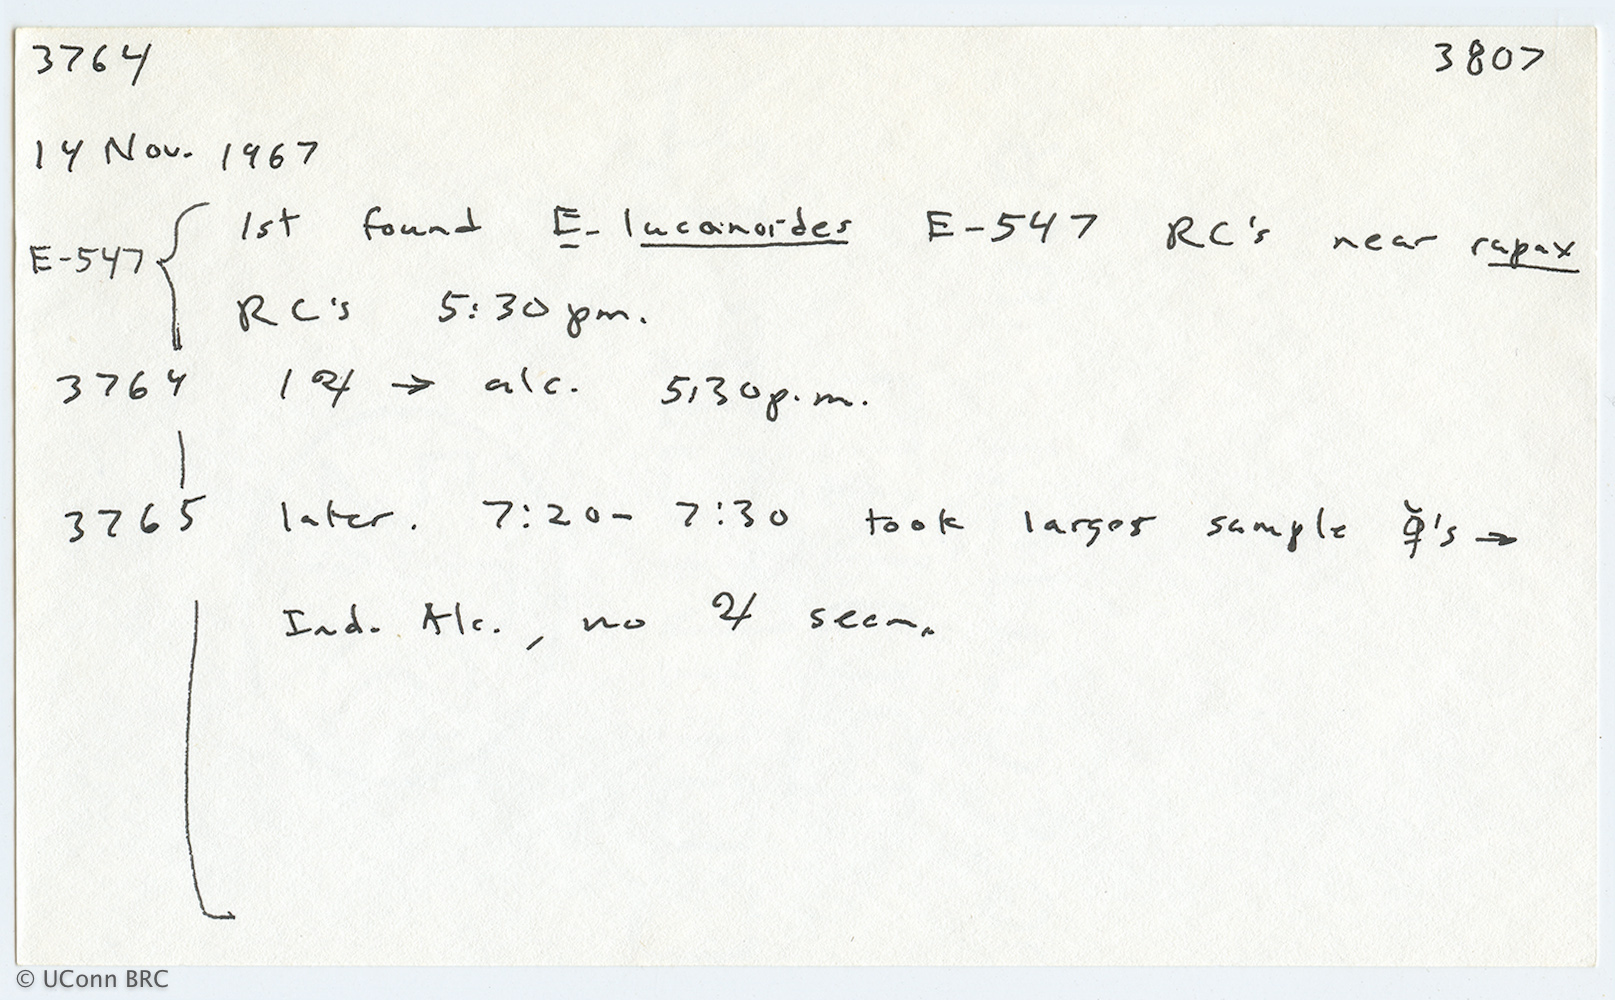 3764 3807
14 Nov. 1967
E-547 { 1st found E. lucanoides E-547 RC's near rapax
RC's 5:30 pm.
3764 1 ♃ → alc. 5:30 p.m.
3765 later. 7:20- 7:30 took larger sample ☿'s →
Ind. Alc., no ♃ seen.
© UConn BRC